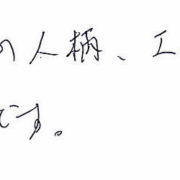 の人柄、工
です。